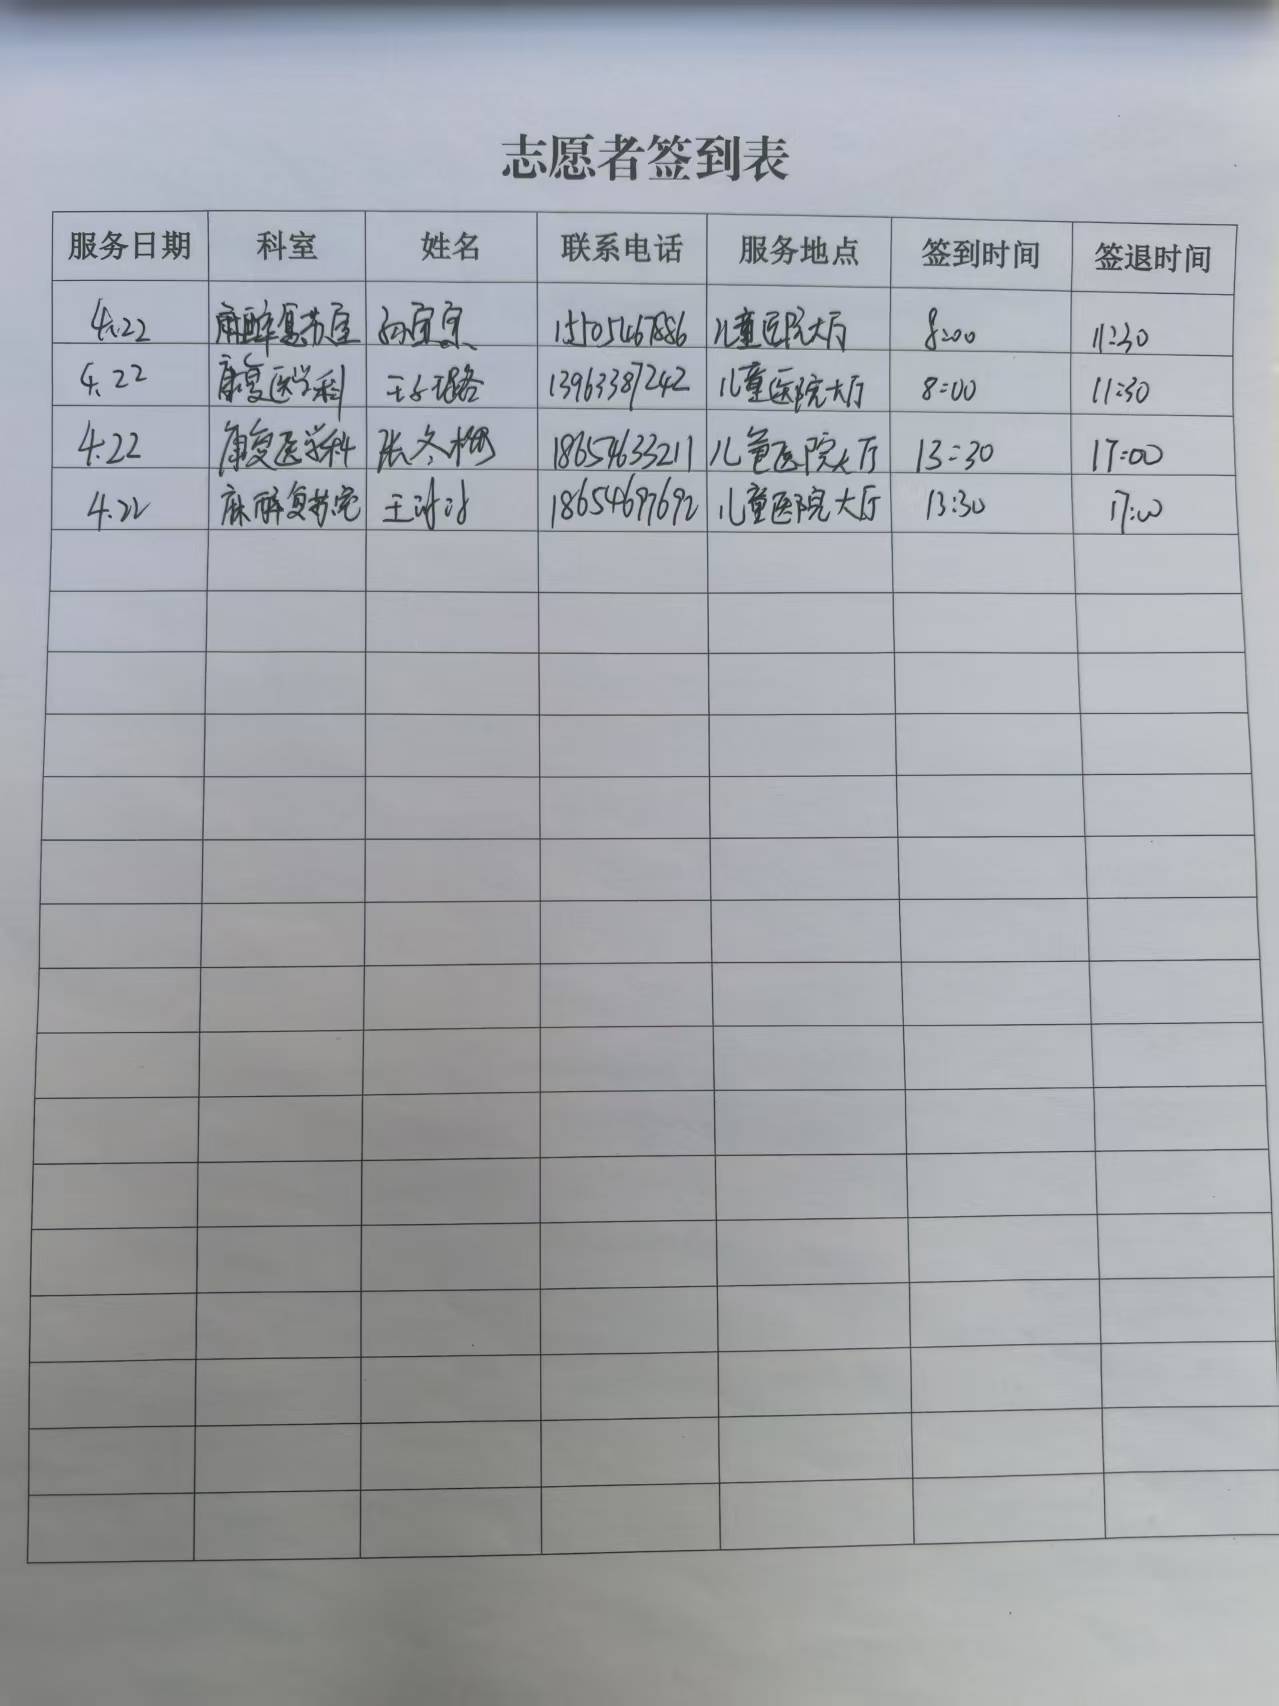 志愿者签到表
服务日期 科室 姓名 联系电话 服务地点 签到时间 签退时间
4.22 麻醉复苏室 15505467886 儿童医院大厅 8:00 11:30
4.22 康复医学科 13963387242 儿童医院大厅 8:00 11:30
4.22 康复医学科 张冬梅 18654633211 儿童医院大厅 13:30 17:00
4.22 麻醉复苏室 王冰冰 18654697692 儿童医院大厅 13:30 17:00